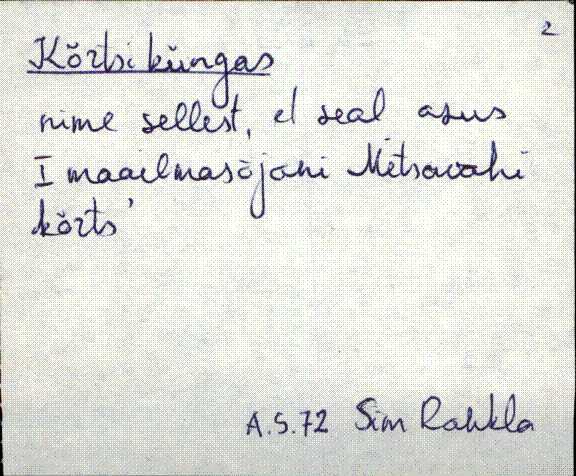 2
Kõrtsi küngas
nime sellest, et seal asus
I maailmasõjani Metsavahi
kõrts'
A.S.72 Sim Rakkla